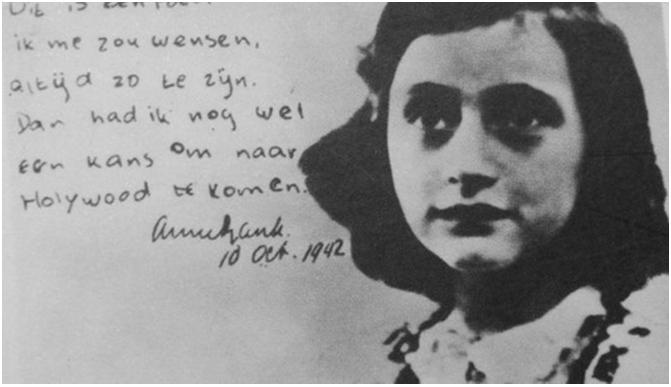 Dit is een foto
ik me zou wensen,
altijd zo te zijn.
Dan had ik nog wel
een kans om naar
Holywood te komen.
Annefrank.
10 Oct. 1942